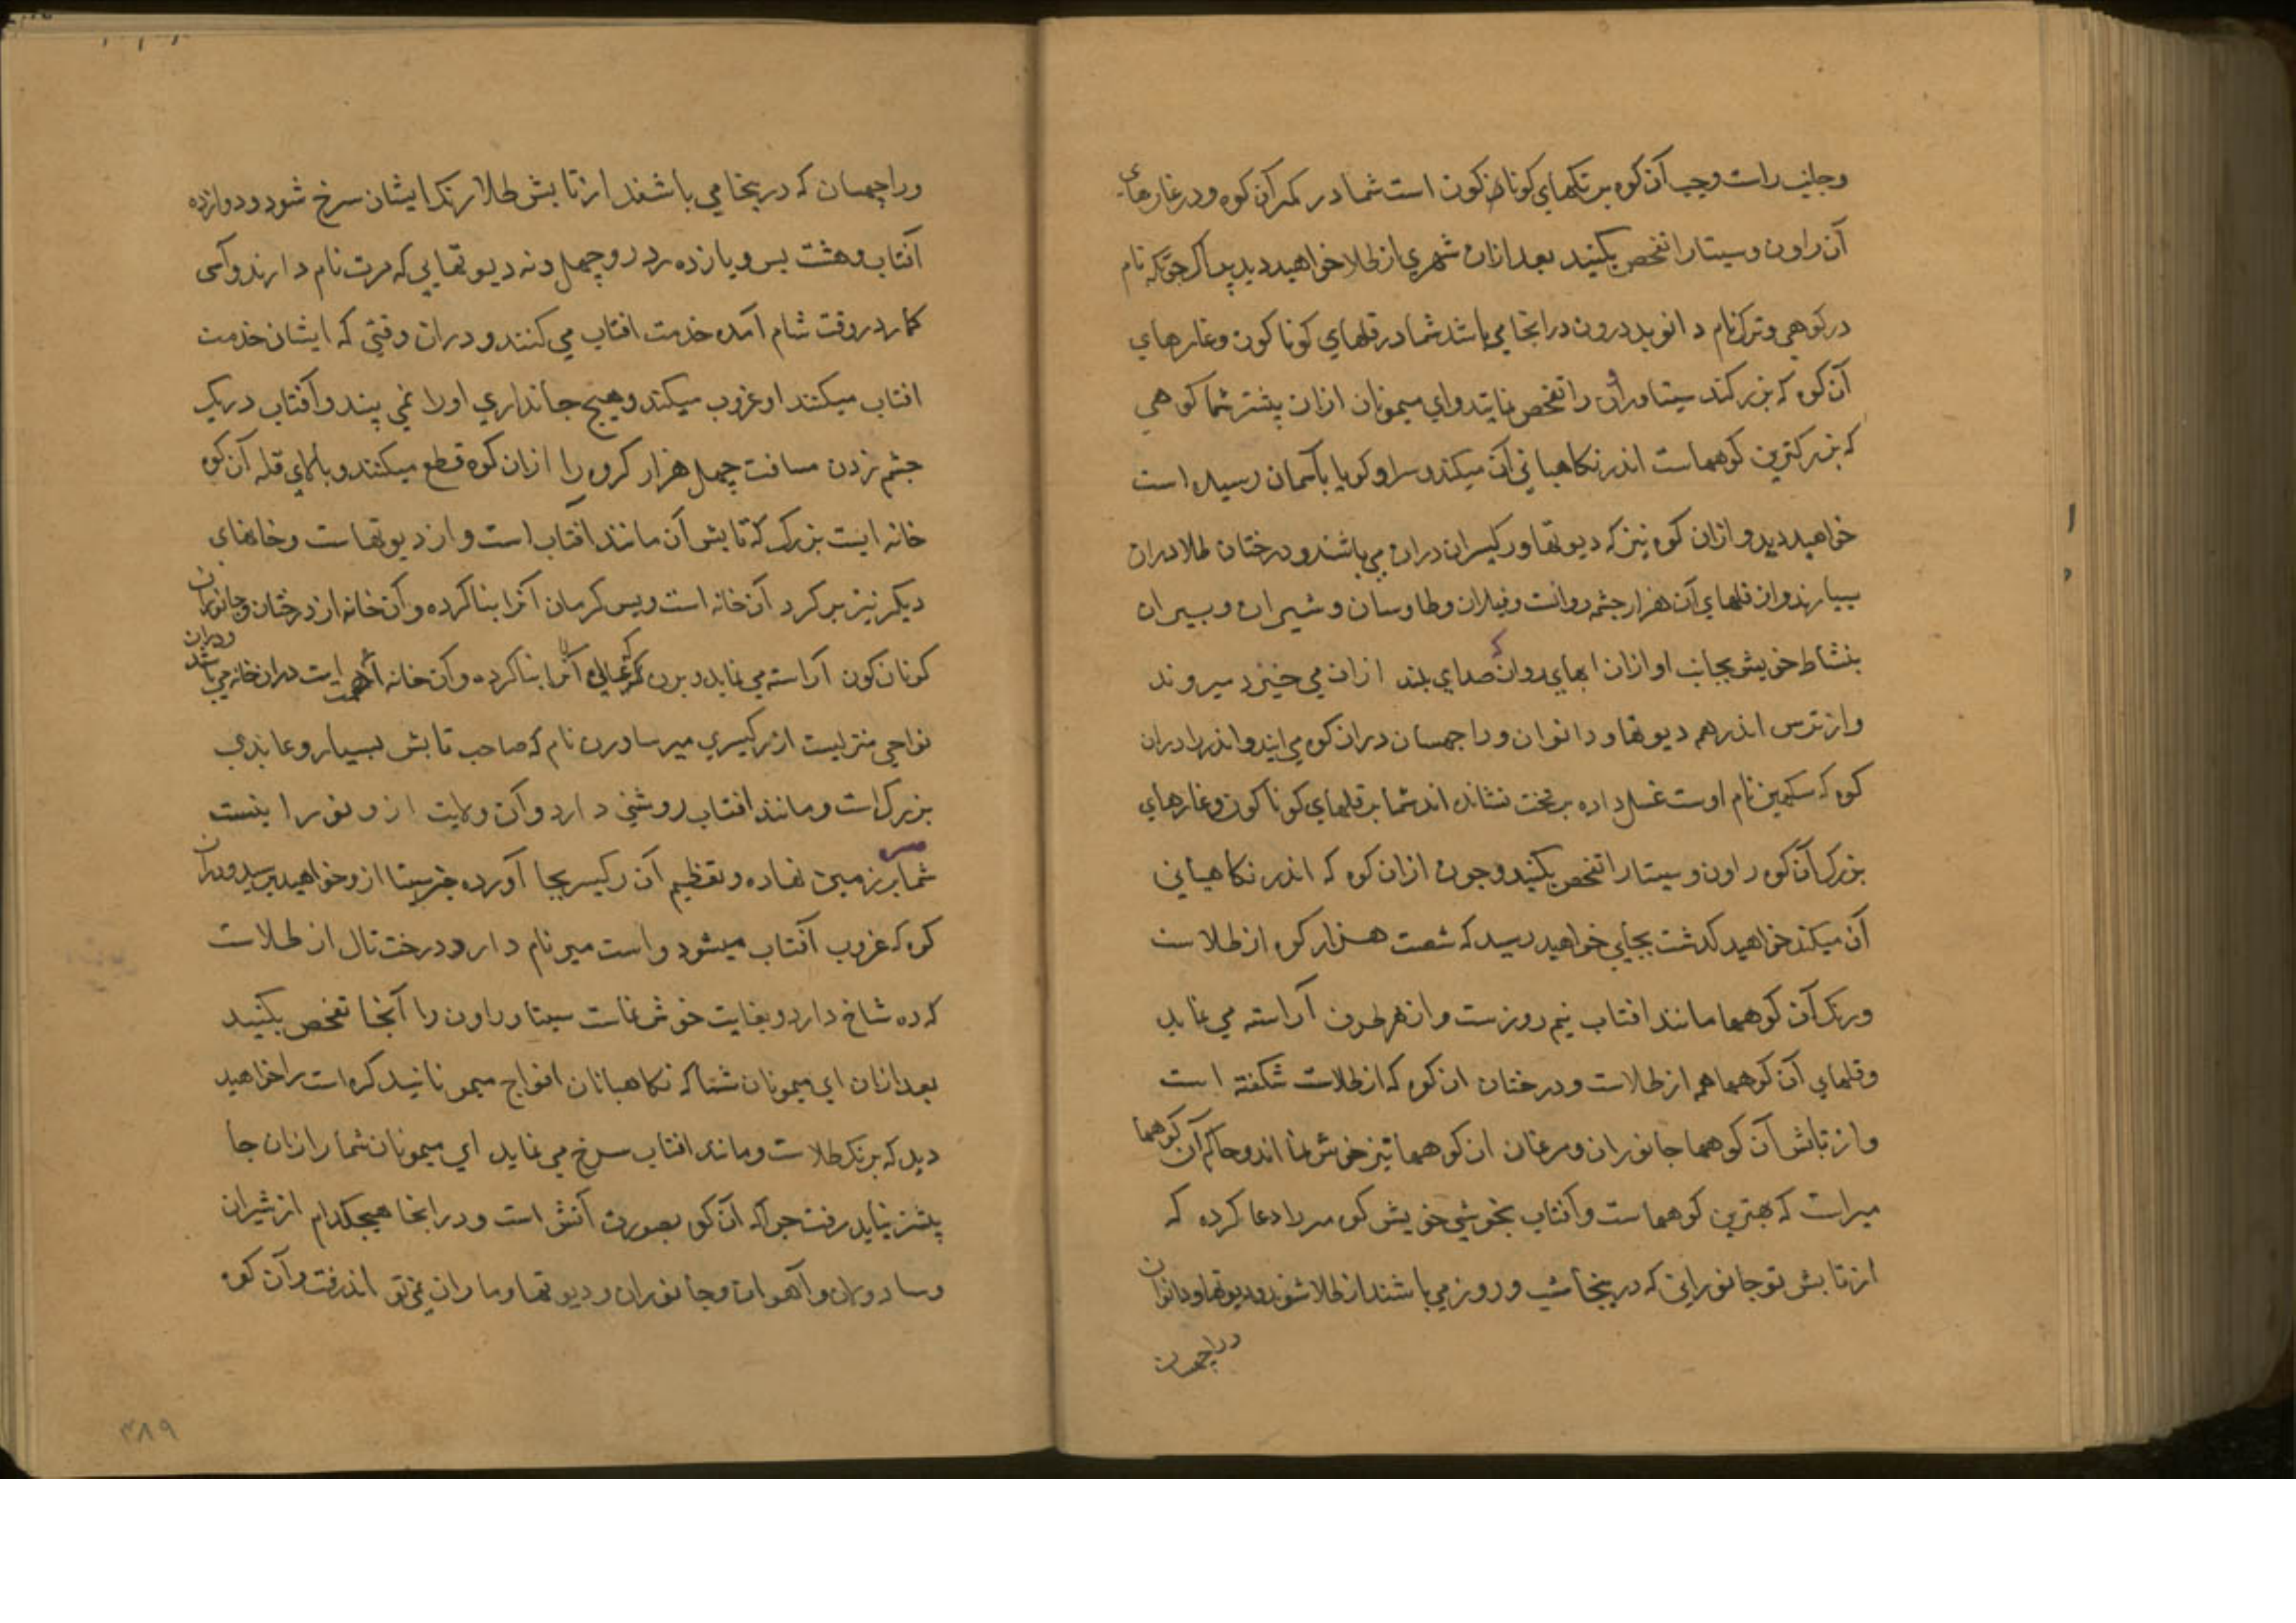 وجانب راست وچپ آن کوه برنکهای کوناکون است شما در کمر آن کوه ودر غارهای
آن راون وسیتا را تفحص بکنید بعد ازان شهری از طلا خواهید دید پراک جوتکه نام
در کوهی ونرک نام دانوبد درون در انجا می باشد شما در قلهای کوناکون وغارهای
آن کوه که بزرکند سیتا وراون را تفحص نمایند وای میمونان ازان پیشتر شما کوهی
که بزرکترین کوههاست اندر نکاهبانی آن میکند وسر او کویا بآسمان رسیده است
خواهید دید وازان کوه نیز که دیوتها ورکیسران دران می باشند ودرختان طلا دران
بسیارند واز قلهای آن هزار چشمه روانست وفیلان وطاوسان وشیران وببران
بنشاط خویش بجانب او ازان ابهای روان که صدای بلند ازان می خیزد میروند
واز ترس اندر هم دیوتها ودانوان وراجهسان دران کوه می ایند واندر را دران
کوه که سکیمین نام اوست غسل داده بر تخت نشانده اند شما بر قلهای کوناکون وغارهای
بزرک آن کوه راون وسیتا را تفحص بکنید وچون ازان کوه که اندر نکاهبانی
آن میکند خواهید کذشت بجایی خواهید رسید که شصت هزار کوه از طلاست
ورنک آن کوهها مانند افتاب نیم روزست واز هر طرف آراسته می نماید
وقلهای آن کوهها هم از طلاست ودرختان ان کوه که از طلاست شکفته است
واز تابش آن کوهها جانوران ومرغان ان کوهها نیز خوش نما اند وحاکم آن کوهها
میرات که بهترین کوههاست وآفتاب بخوشی خویش کوه میر را دعا کرده که
از تابش تو جانورانی که درینجا شب وروز می باشند از طلا شوند ودیوتها ودانوان
وراجهسان
وراجهسان که درینجا می باشند از تابش طلا رنک ایشان سرخ شود ودوازده
آفتاب وهشت بس ویازده ردر وچهل ونه دیوتهایی که مرت نام دارند وآسی
کمار در وقت شام آمده خدمت افتاب می کنند ودران وقتی که ایشان خدمت
افتاب میکنند او غروب میکند وهیچ جانداری او را نمی بیند وآفتاب در یک
چشم زدن مسافت چهل هزار کروه را ازان کوه قطع میکند وبالای قله آن کوه
خانه ایست بزرک که تابش آن مانند افتاب است واز دیوتهاست وخانهای
دیکر نیز بر کرد آن خانه است وبس کرمان آنرا بنا کرده وآن خانه از درختان وجانوران
کوناکون آراسته می نماید وبرن که آنرا بنا کرده وآن خانه ایست دران خانه می باشد ودران
نواحی منزلیست از رکیسری میر ساورن نام که صاحب تابش بسیار وعابدی
بزرک است ومانند افتاب روشنی دارد وآن ولایت از و نور را
شما سر بر زمین نهاده وتعظیم آن رکیسر بجا آورده خبر سیتا ازو خواهید پرسید ودران
کوه که غروب آفتاب میشود واست میر نام دارد درخت تال از طلاست
که ده شاخ دارد وبغایت خوش نماست سیتا وراون را آنجا تفحص بکنید
بعد ازان ای میمونان شتا که نکاهبانان افواج میمونانید کره است را خواهید
دید که برنک طلاست ومانند افتاب سرخ می نماید ای میمونان شما را ازان جا
پیشتر نباید رفت چراکه آن کوه بصورت آتش است ودر انجا هیچکدام از شیران
وسادولان وآهوان وجانوران ودیوتها وماران نمی تواند رفت وآن کوه
۳۸۹